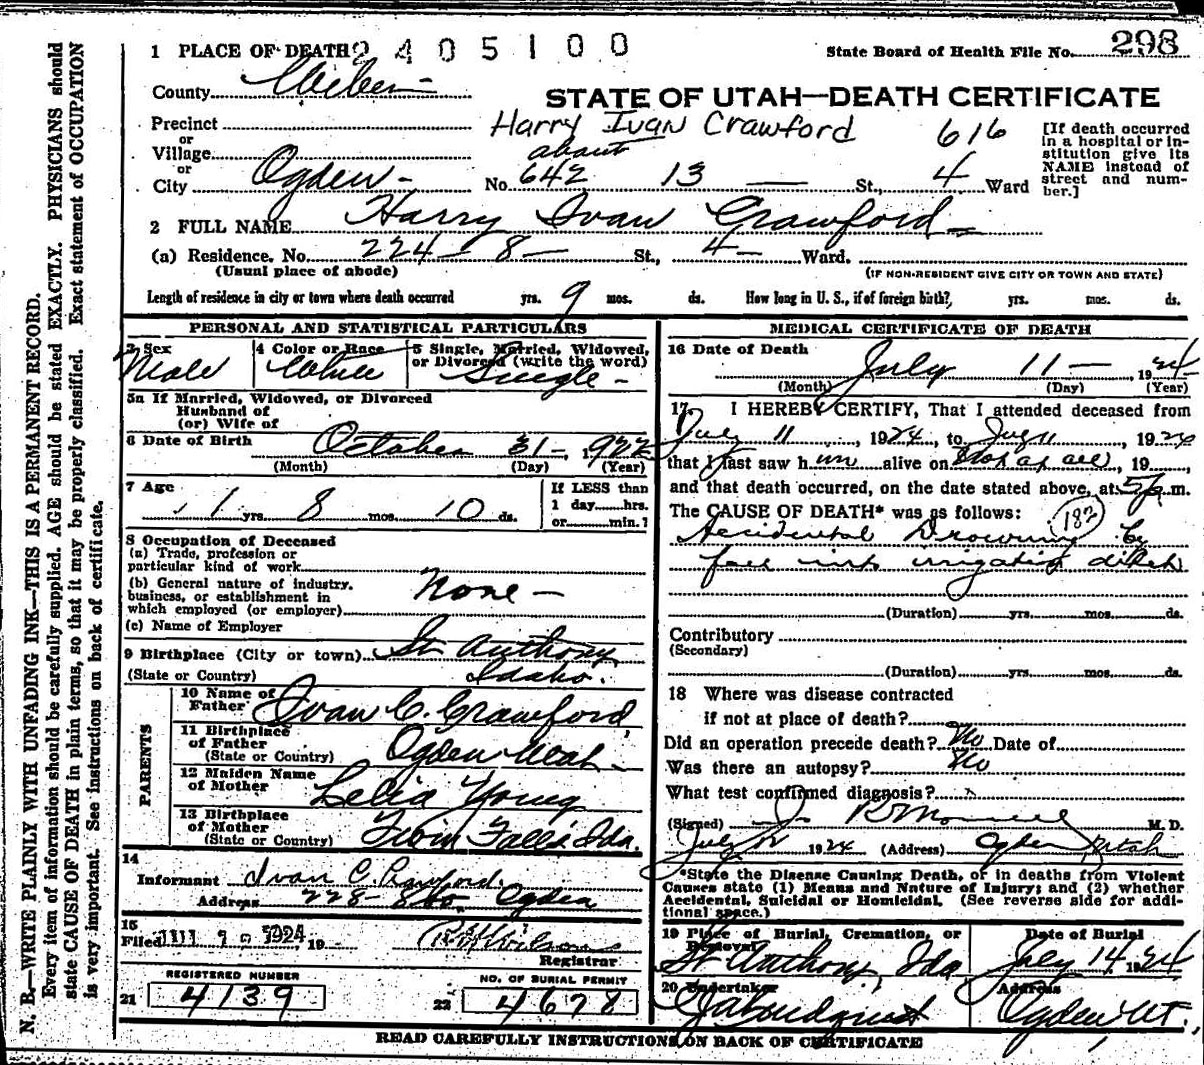 1 PLACE OF DEATH 2405100
State Board of Health File No. 298
County Weber
STATE OF UTAH—DEATH CERTIFICATE
Precinct
or
Village
or
City Ogden
Harry Ivan Crawford 616
about
No. 642 13 — St., 4 Ward
[If death occurred
in a hospital or in-
stitution give its
NAME instead of
street and num-
ber.]
2 FULL NAME Harry Ivan Crawford
(a) Residence. No. 224 – 8 – St., 4 – Ward.
(Usual place of abode)
(IF NON-RESIDENT GIVE CITY OR TOWN AND STATE)
Length of residence in city or town where death occurred yrs. 9 mos. ds. How long in U. S., if of foreign birth?, yrs. mos. ds.
PERSONAL AND STATISTICAL PARTICULARS
3 Sex Male
4 Color or Race White
5 Single, Married, Widowed,
or Divorced (write the word)
Single –
5a If Married, Widowed, or Divorced
Husband of
(or) Wife of
6 Date of Birth October 31 – 1922
(Month) (Day) (Year)
7 Age 1 yrs. 8 mos. 10 ds.
If LESS than
1 day......hrs.
or......min.?
8 Occupation of Deceased
(a) Trade, profession or
particular kind of work
(b) General nature of industry,
business, or establishment in
which employed (or employer)
None –
(c) Name of Employer
9 Birthplace (City or town) St Anthony
(State or Country) Idaho.
PARENTS
10 Name of
Father Ivan C. Crawford
11 Birthplace
of Father
(State or Country) Ogden Utah –
12 Maiden Name
of Mother Lelia Young
13 Birthplace
of Mother
(State or Country) Twin Falls Ida.
14
Informant Ivan C Crawford.
Address 228 – 8th Ogden
15
Filed 1924, 19
R Wilson
Registrar
REGISTERED NUMBER
21 4139
NO. OF BURIAL PERMIT
22 4678
MEDICAL CERTIFICATE OF DEATH
16 Date of Death July 11 – , 1924
(Month) (Day) (Year)
17. I HEREBY CERTIFY, That I attended deceased from
July 11, 1924, to July 11, 1924
that I last saw him alive on Not at all, 19
and that death occurred, on the date stated above, at 5 p m.
The CAUSE OF DEATH* was as follows: (182)
Accidental Drowning by
fall into irrigation ditch
(Duration) yrs. mos. ds.
Contributory
(Secondary)
(Duration) yrs. mos. ds.
18 Where was disease contracted
if not at place of death?
Did an operation precede death? No Date of
Was there an autopsy? No
What test confirmed diagnosis?
(Signed) M. D.
July 12 1924 (Address) Ogden Utah
*State the Disease Causing Death, or in deaths from Violent
Causes state (1) Means and Nature of Injury; and (2) whether
Accidental, Suicidal or Homicidal. (See reverse side for addi-
tional space.)
19 Place of Burial, Cremation, or
Removal
St Anthony, Ida
Date of Burial
July 14 1924
20 Undertaker
Address
Ogden, Ut.
READ CAREFULLY INSTRUCTIONS ON BACK OF CERTIFICATE
N. B.—WRITE PLAINLY WITH UNFADING INK—THIS IS A PERMANENT RECORD.
Every item of information should be carefully supplied. AGE should be stated EXACTLY. PHYSICIANS should
state CAUSE OF DEATH in plain terms, so that it may be properly classified. Exact statement of OCCUPATION
is very important. See instructions on back of certificate.